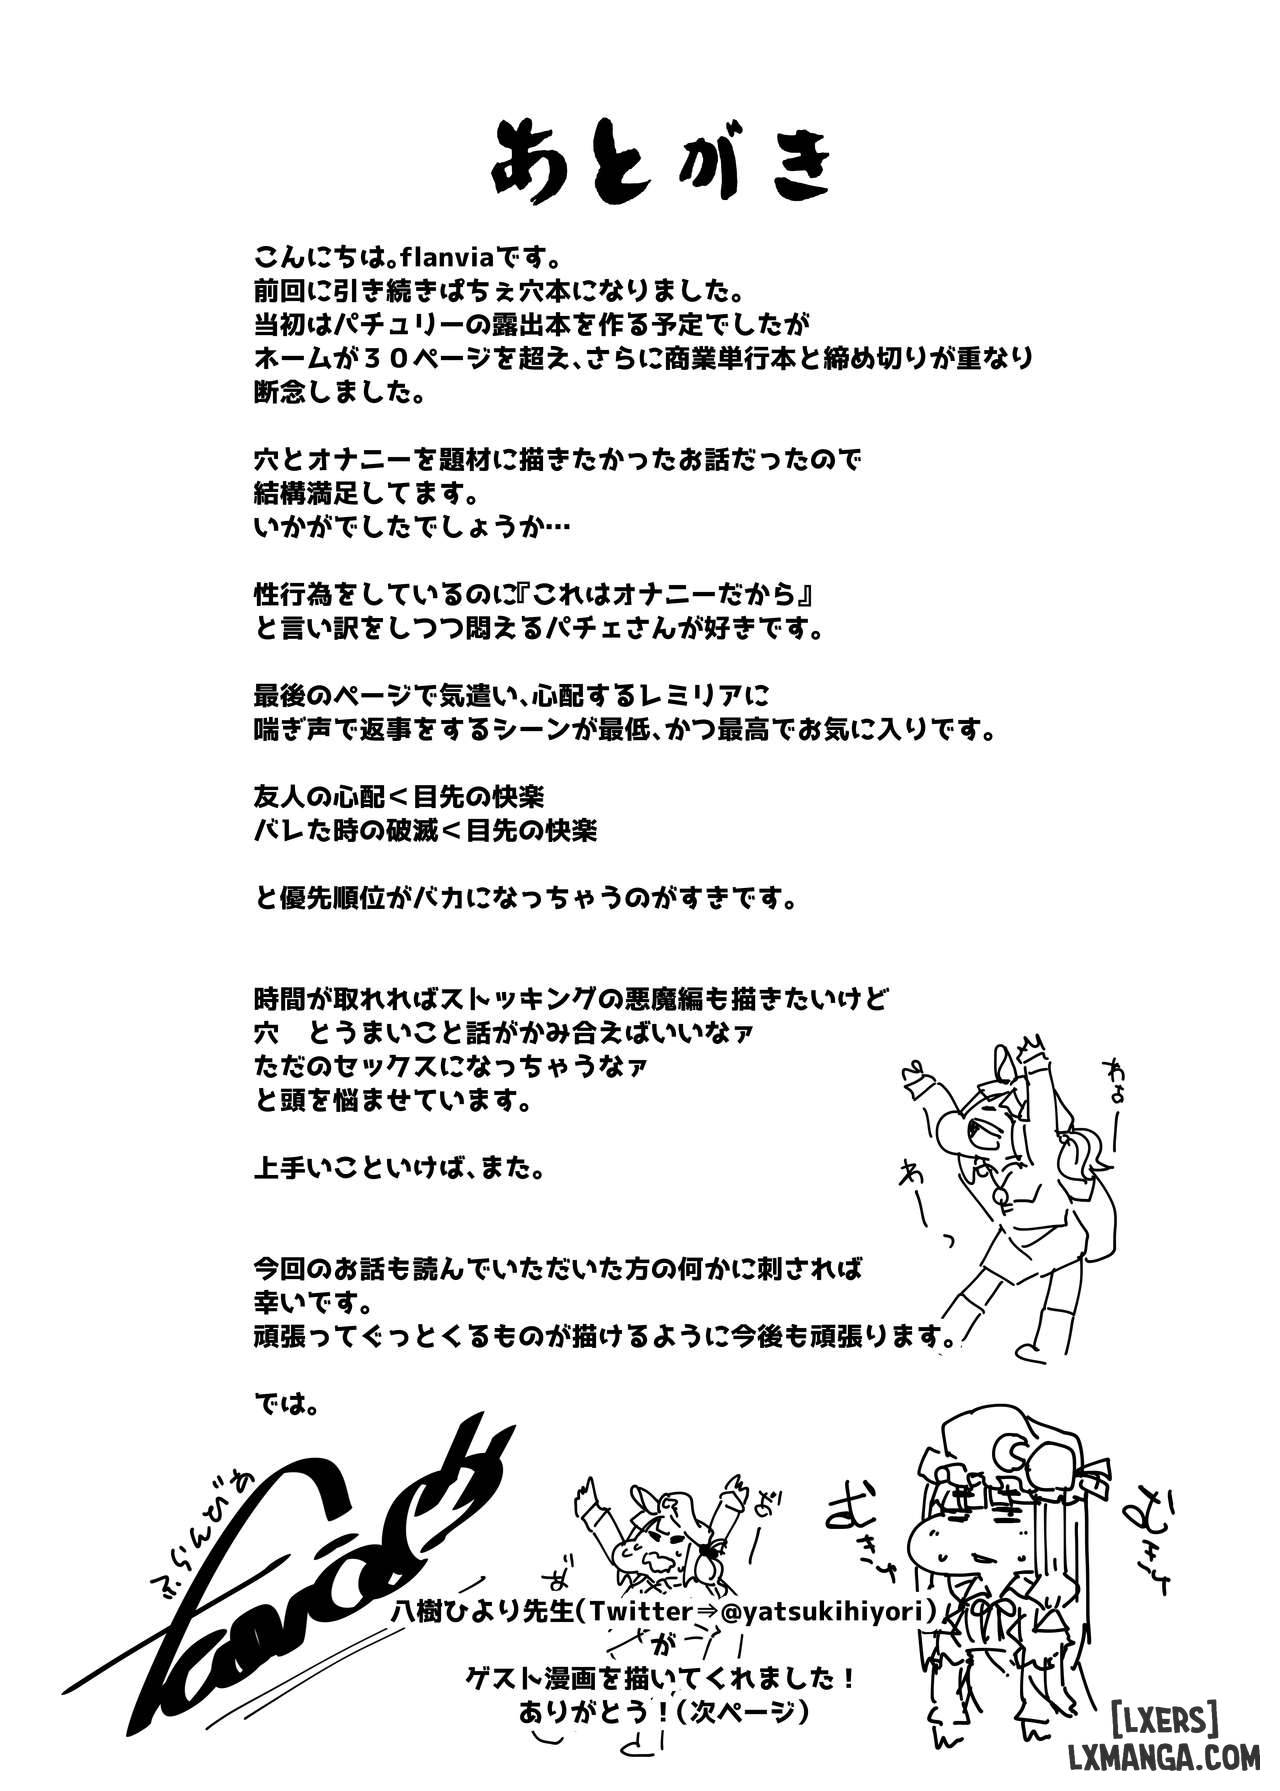 あとがき
こんにちは。flanviaです。
前回に引き続きぱちぇ穴本になりました。
当初はパチュリーの露出本を作る予定でしたが
ネームが３０ページを超え、さらに商業単行本と締め切りが重なり
断念しました。
穴とオナニーを題材に描きたかったお話だったので
結構満足してます。
いかがでしたでしょうか…
性行為をしているのに『これはオナニーだから』
と言い訳をしつつ悶えるパチェさんが好きです。
最後のページで気遣い、心配するレミリアに
喘ぎ声で返事をするシーンが最低、かつ最高でお気に入りです。
友人の心配＜目先の快楽
バレた時の破滅＜目先の快楽
と優先順位がバカになっちゃうのがすきです。
時間が取れればストッキングの悪魔編も描きたいけど
穴　とうまいこと話がかみ合えばいいなァ
ただのセックスになっちゃうなァ
と頭を悩ませています。
上手いこといけば、また。
今回のお話も読んでいただいた方の何かに刺されば
幸いです。
頑張ってぐっとくるものが描けるように今後も頑張ります。
では。
わよー
わーっ
ふらんびあ
むきゅ
八樹ひより先生（Twitter⇒@yatsukihiyori）
が
ゲスト漫画を描いてくれました！
ありがとう！（次ページ）
[LXERS]
LXMANGA.COM